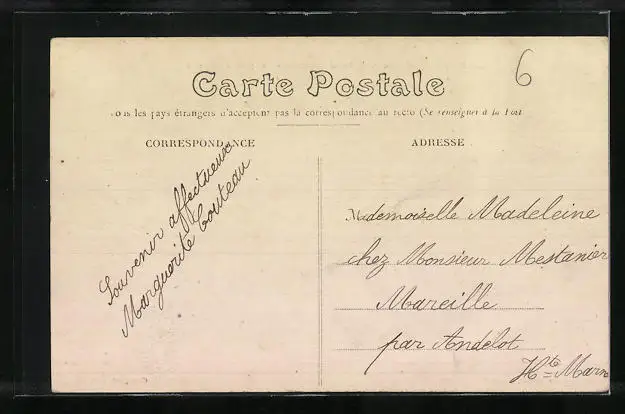 6
Carte Postale
Tous les pays étrangers n'acceptent pas la correspondance au recto (Se renseigner à la Post
CORRESPONDANCE
ADRESSE
Souvenir affectueux
Marguerite Couteau
Mademoiselle Madeleine
chez Monsieur Mestanier
Mareille
par Andelot
Hte = Marn